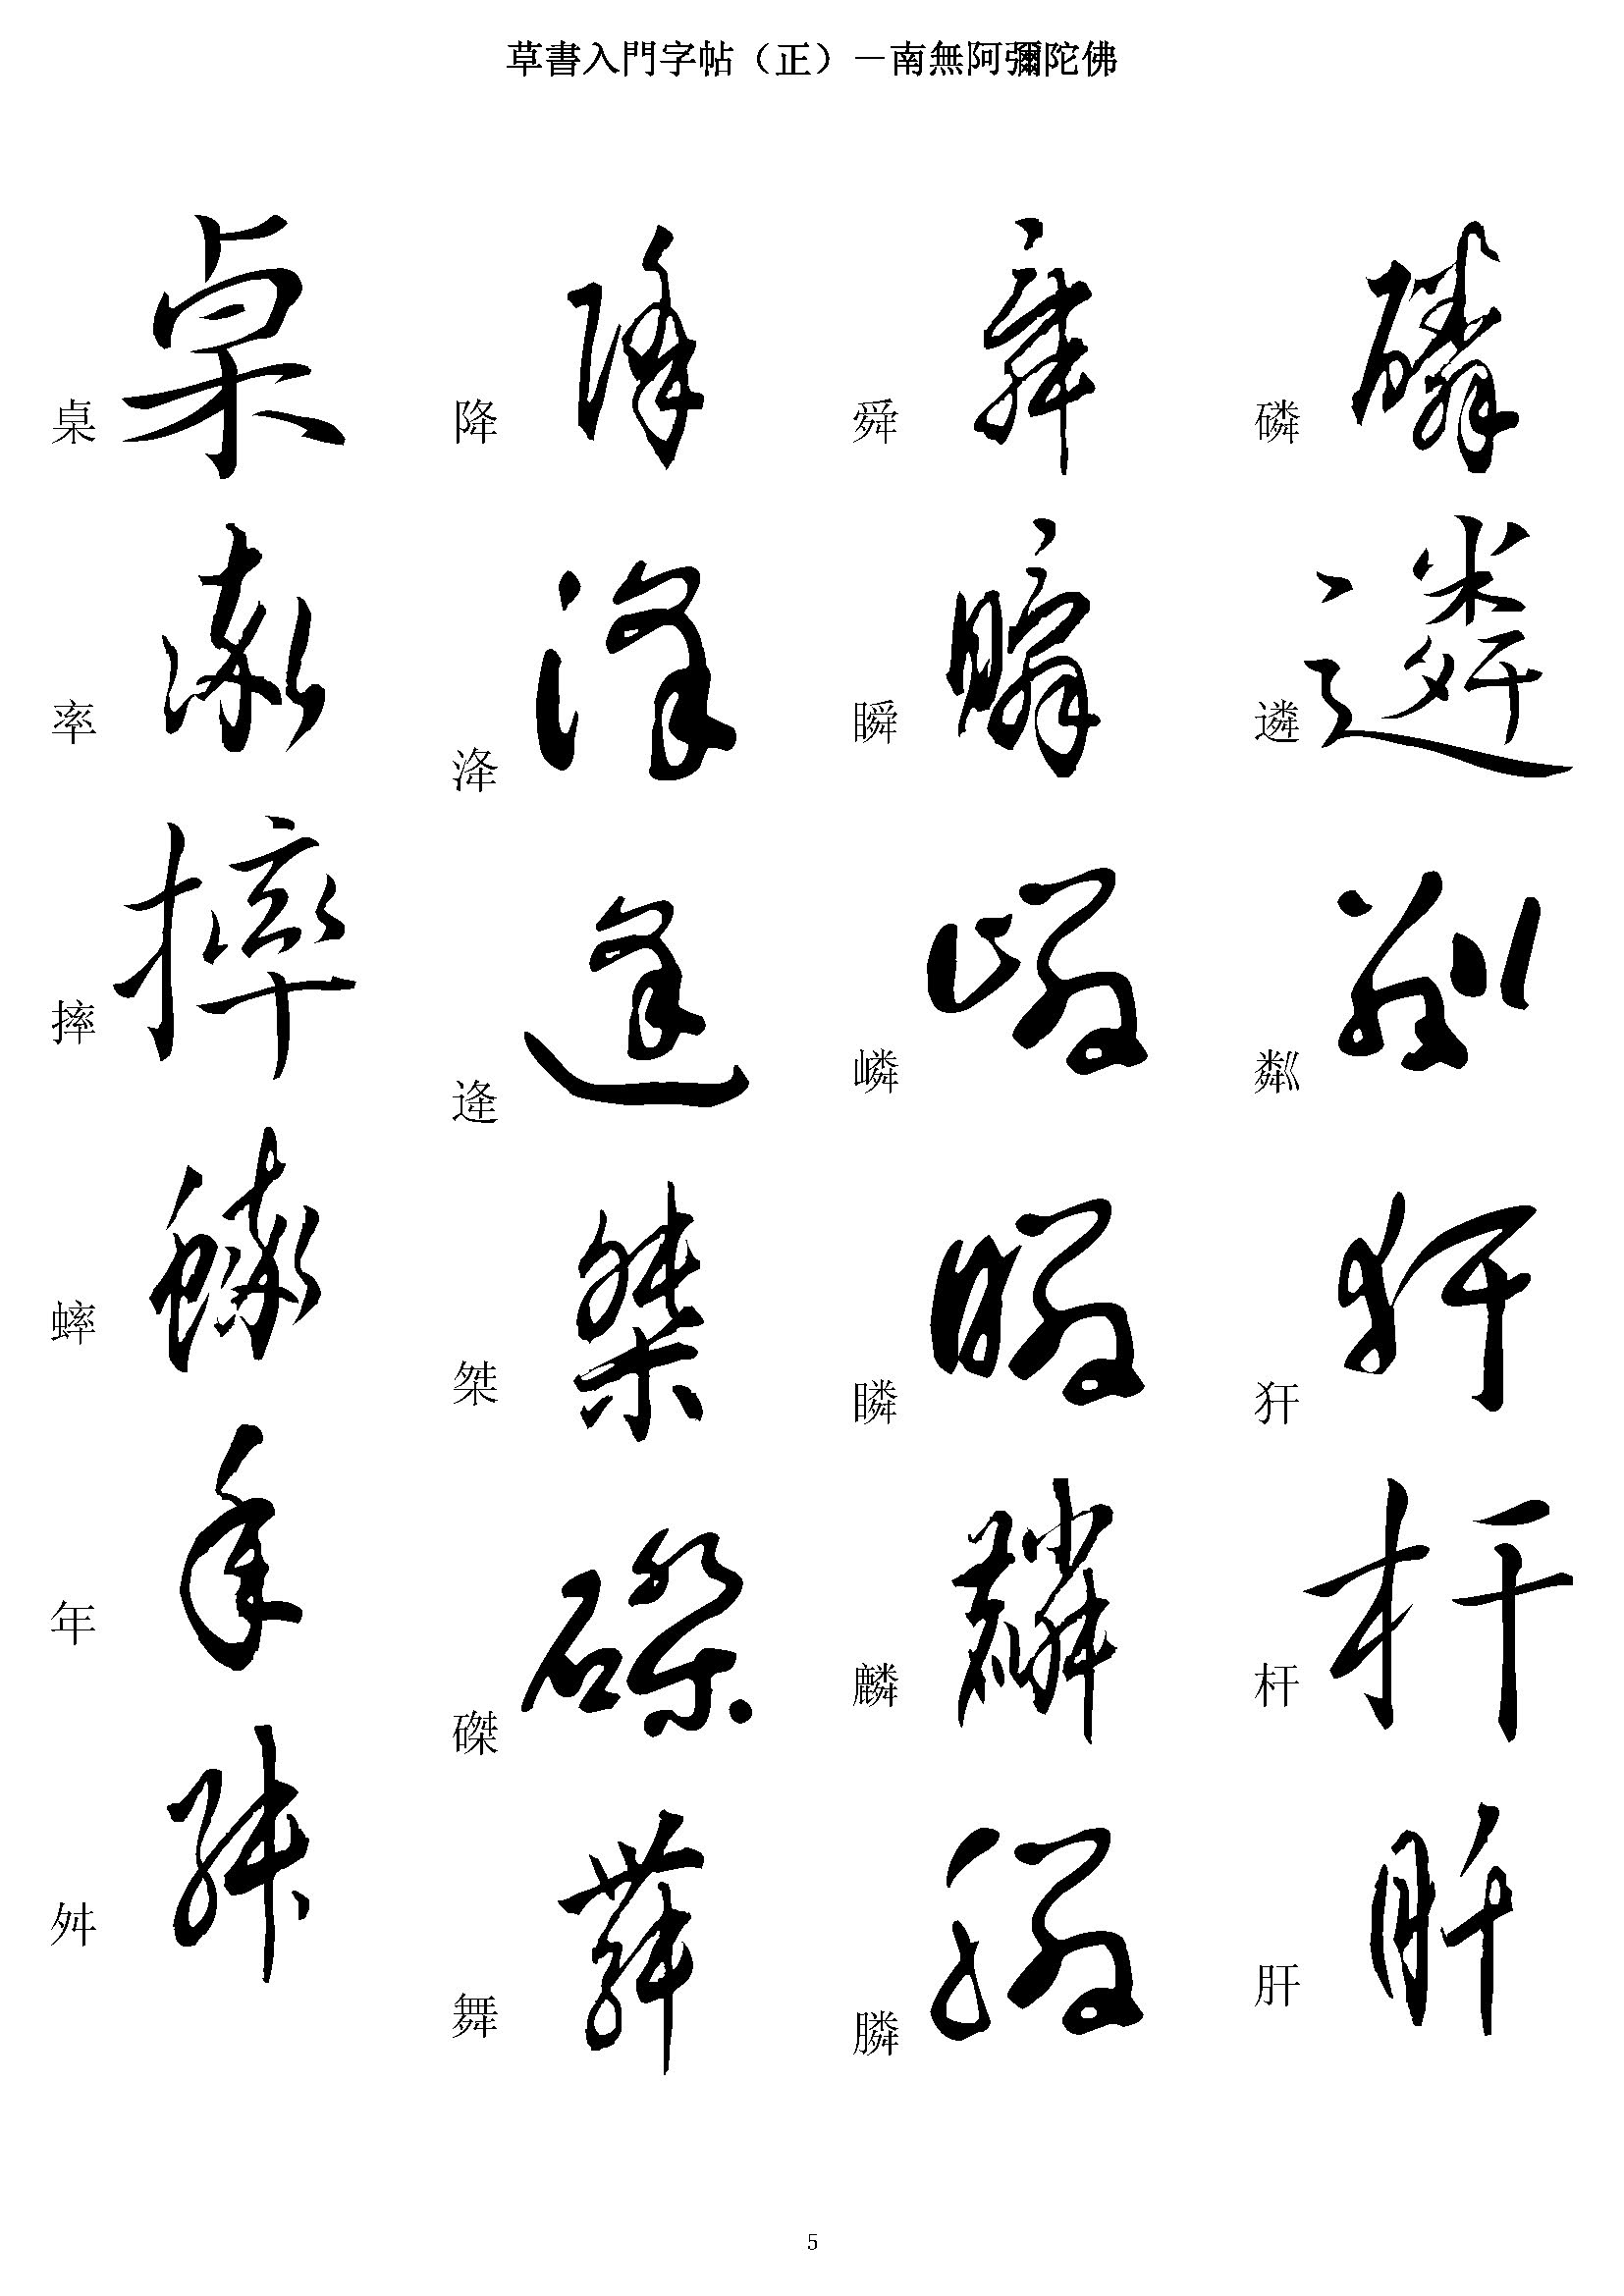 草書入門字帖（正）－南無阿彌陀佛
桌 降 舜 磷
率 洚 瞬 遴
摔 逄 嶙 粼
蟀 桀 瞵 犴
年 磔 麟 杆
舛 舞 膦 肝
5